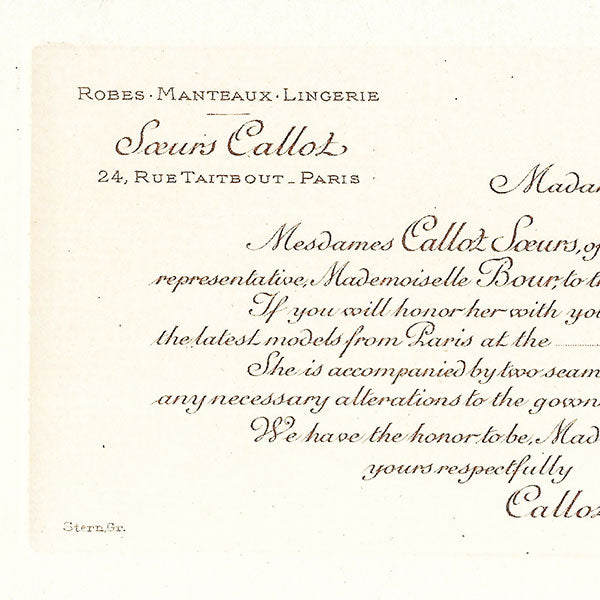 ROBES · MANTEAUX · LINGERIE
Sœurs Callot
24, RUE TAITBOUT _ PARIS
Mesdames Callot Sœurs, of
representative, Mademoiselle Bour, to
If you will honor her with
the latest models from Paris at the
She is accompanied by two
any necessary alterations to the
We have the honor to be,
yours respectfully
Stern, Gr.